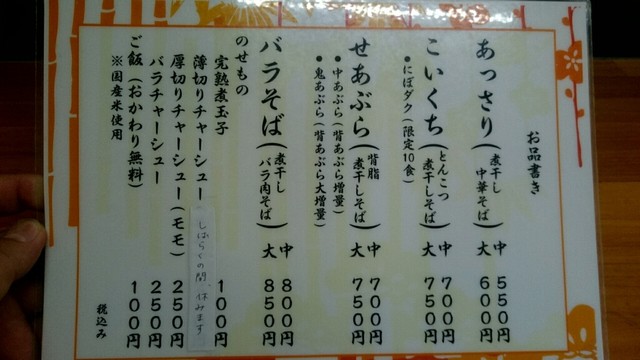 お品書き
あっさり(煮干し中華そば) 中 550円
大 600円
こいくち(とんこつ煮干しそば) 中 700円
大 750円
●にぼダク(限定10食)
せあぶら(背脂煮干しそば) 中 700円
大 750円
●中あぶら(背あぶら増量)
●鬼あぶら(背あぶら大増量)
バラそば(煮干しバラ肉そば) 中 800円
大 850円
のせもの
完熟煮玉子 100円
薄切りチャーシュー しばらくの間、休みます
厚切りチャーシュー(モモ) 250円
バラチャーシュー 250円
ご飯(おかわり無料) 100円
※国産米使用
税込み